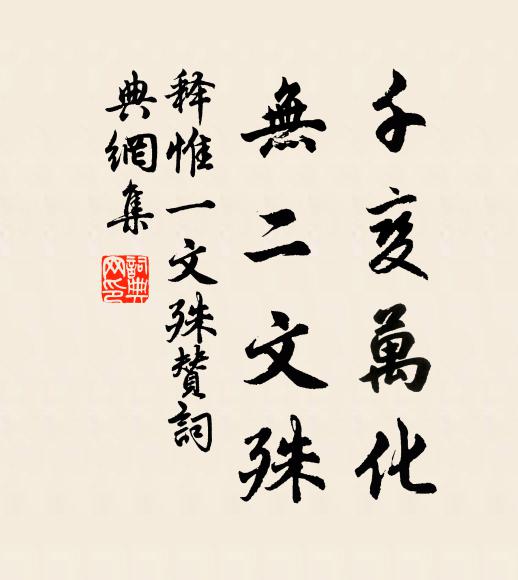 千变萬化
無二文殊
释惟一文殊贊詞
典網集
詞典网印